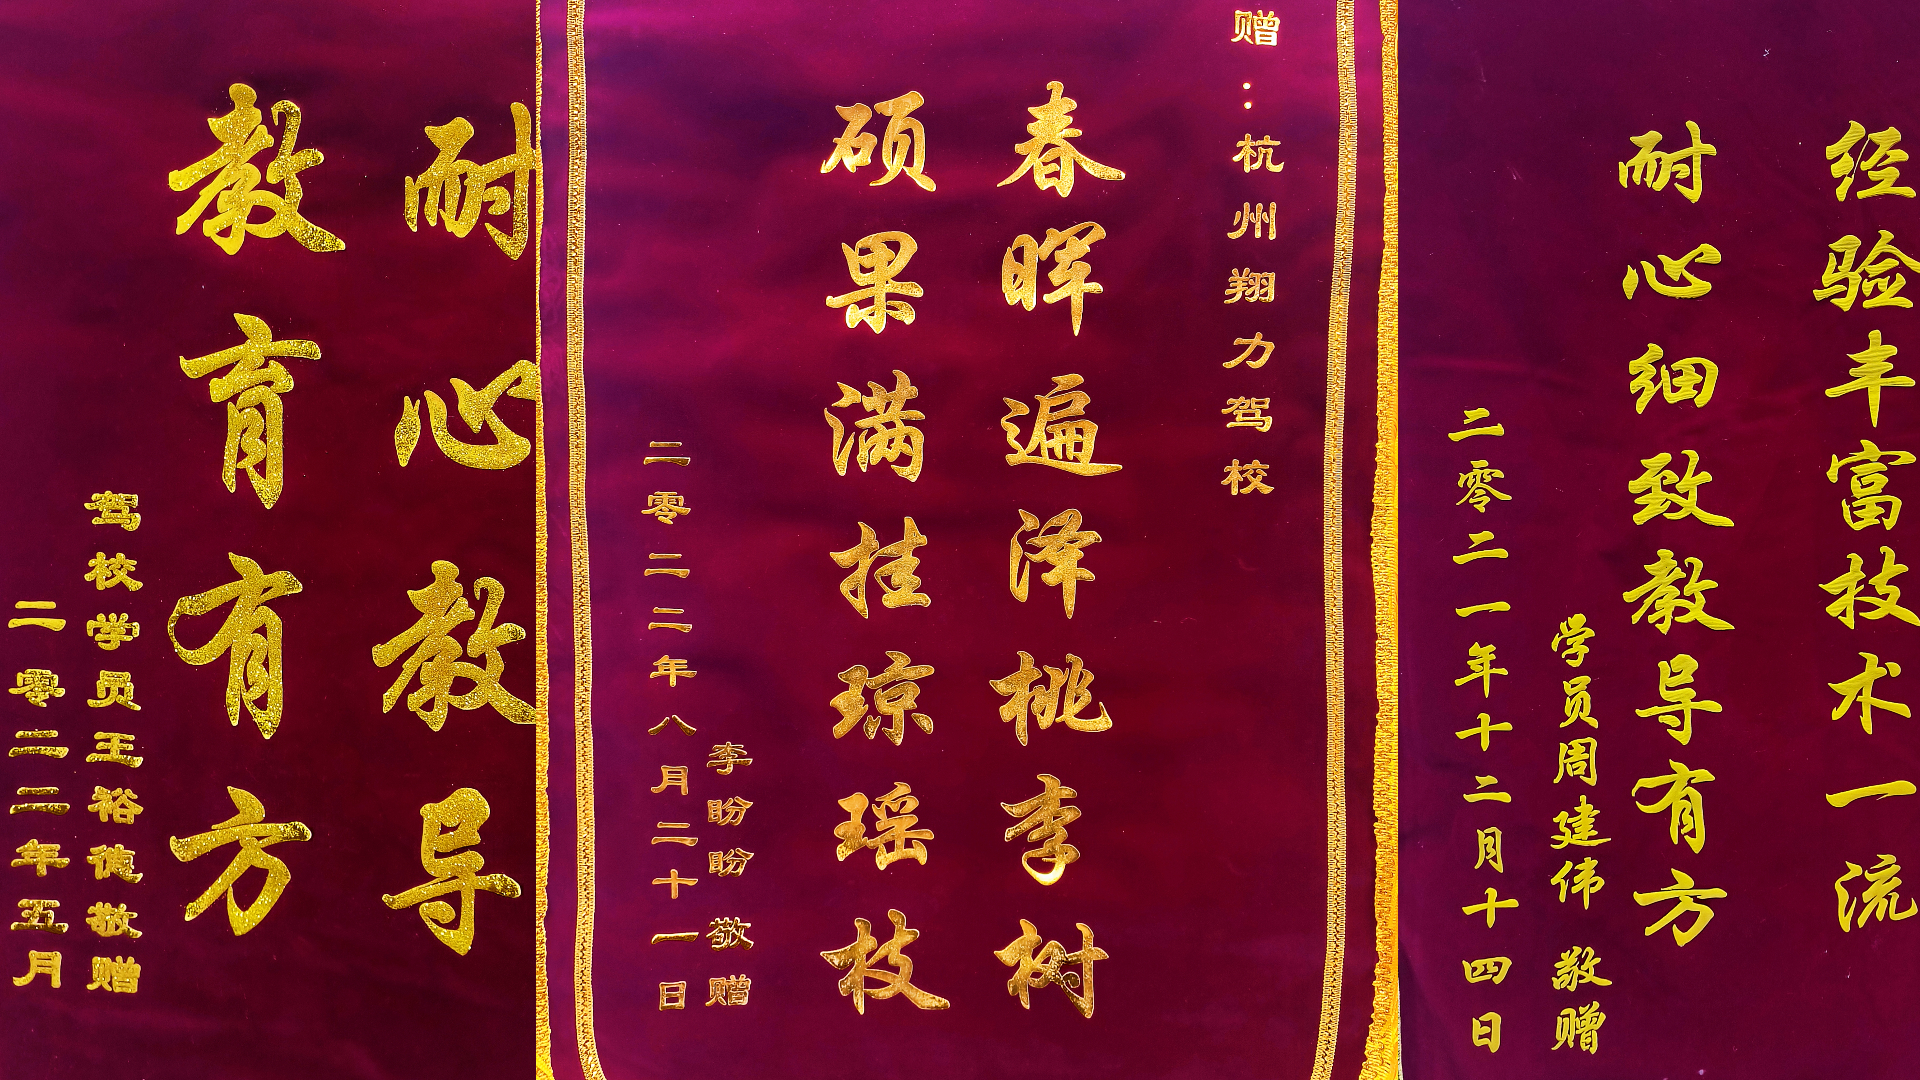 耐心教导
教育有方
驾校学员王裕德敬赠
二零二二年五月
赠：杭州翔力驾校
春晖遍泽桃李树
硕果满挂琼瑶枝
李盼盼 敬赠
二零二二年八月二十一日
经验丰富技术一流
耐心细致教导有方
学员周建伟 敬赠
二零二一年十二月十四日